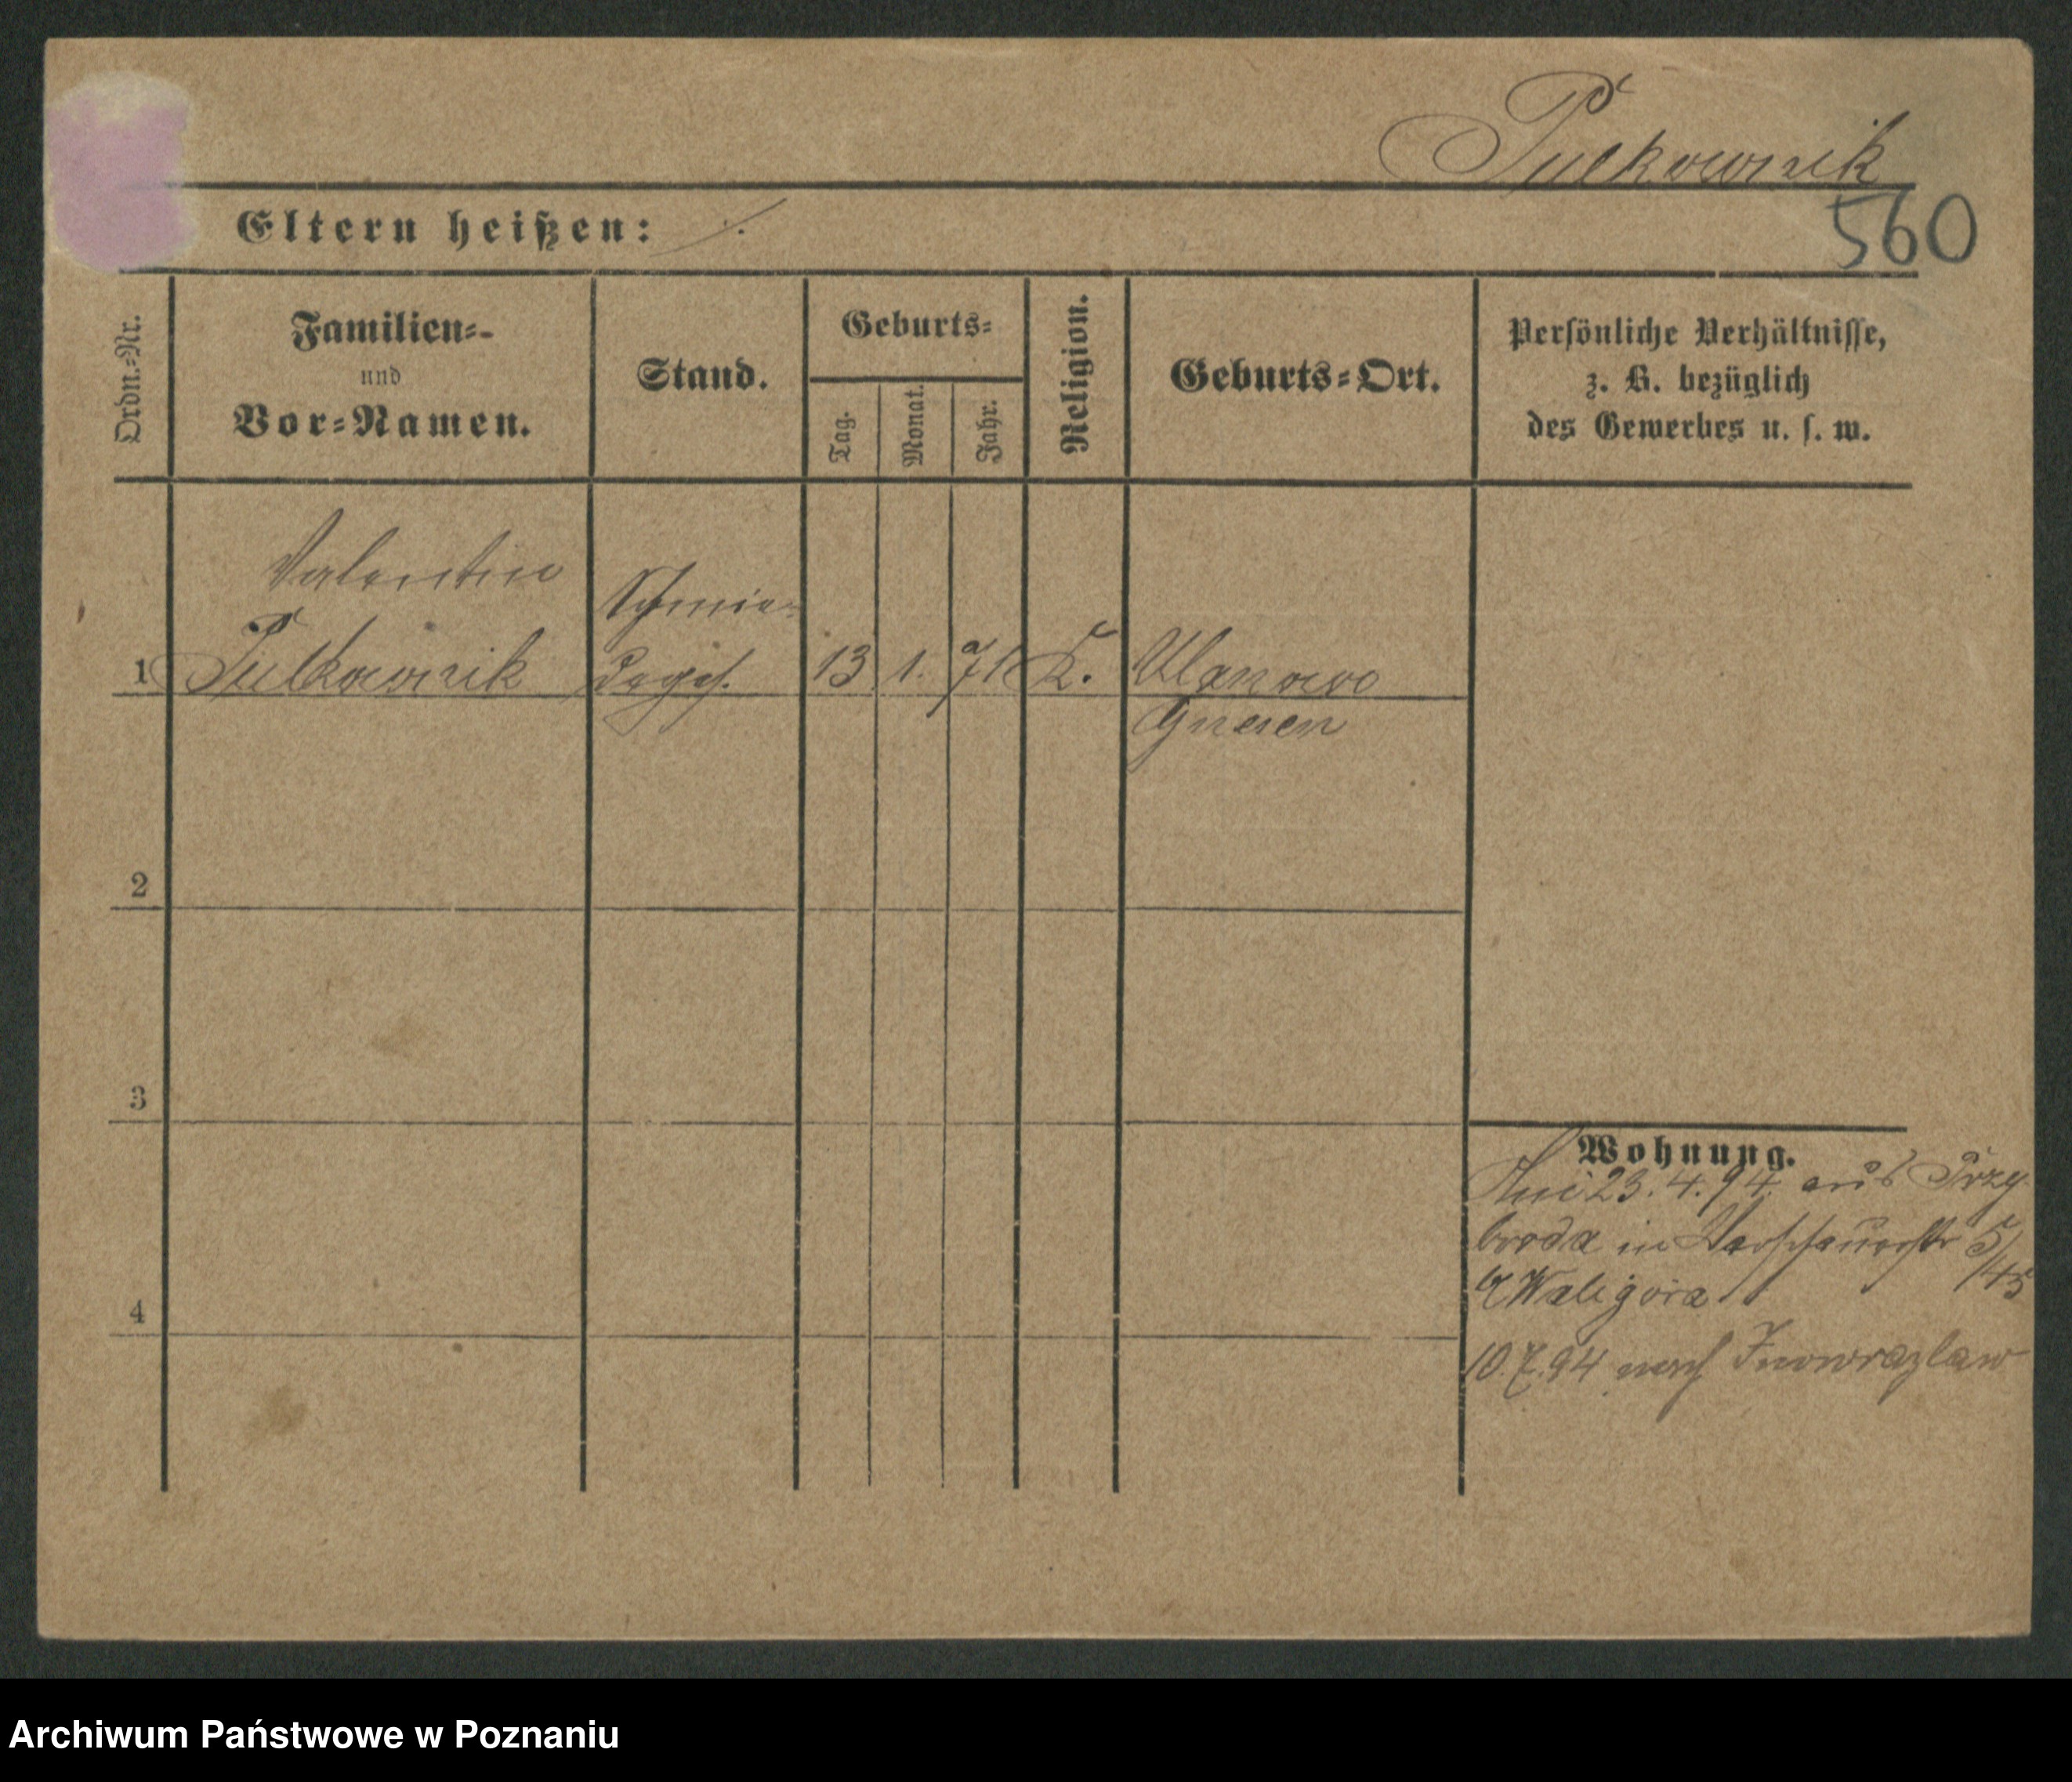 Pulkownik
Eltern heißen: ./.
560
Ordn.=Nr.
Familien=
und
Vor=Namen.
Stand.
Geburts=
Tag.
Monat.
Jahr.
Religion.
Geburts=Ort.
Persönliche Verhältnisse,
z. B. bezüglich
des Gewerbes u. s. w.
Valentin
Schmie=
1 Pulkownik deges. 13 1. 71 K. Ulanowo
Gnesen
2
3
4
Wohnung.
23.4.94. aus Przy
broda in Warschauerstr 5/45
b Waligora
10.7.94 nach Inowrazlaw
Archiwum Państwowe w Poznaniu